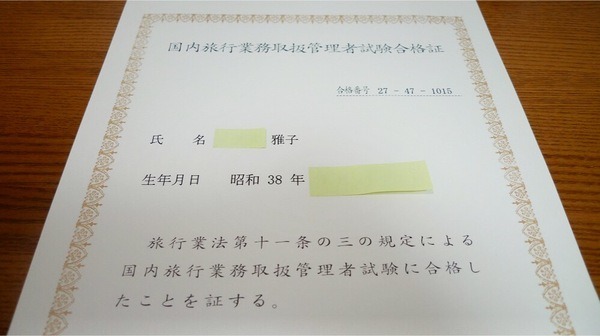 国内旅行業務取扱管理者試験合格証
合格番号 27 - 47 - 1015
氏 名 雅子
生年月日 昭和 38 年
旅行業法第十一条の三の規定による
国内旅行業務取扱管理者試験に合格し
たことを証する。